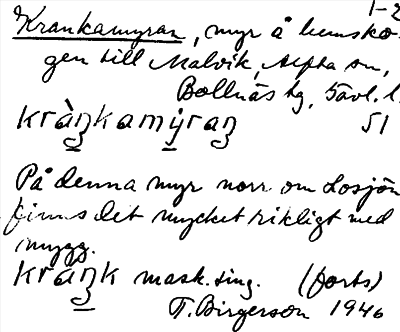 1-2
Krankamyran, myr å hemsko-
gen till Malvik, Alfta sn,
Bollnäs tg, Gävl. l.
kràŋkamýraŋ 51
På denna myr norr om Losjön
finns det mycket rikligt med
mygg.
kraŋk mask. sing. (forts)
T. Birgerson 1946